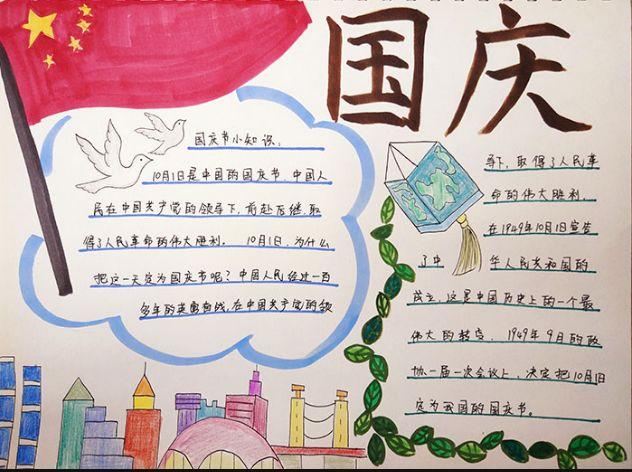 国庆
国庆节小知识。
10月1日是中国的国庆节。中国人
民在中国共产党的领导下,前赴后继,取
得了人民革命的伟大胜利。 10月1日,为什么
把这一天定为国庆节呢?中国人民经过一百
多年的英勇奋战,在中国共产党的领
导下,取得了人民革
命的伟大胜利。
在1949年10月1日宣告
了中 华人民共和国的
成立,这是中国历史上的一个最
伟大的转变。1949年9月的政
协一届一次会议上,决定把10月1日
定为我国的国庆节。